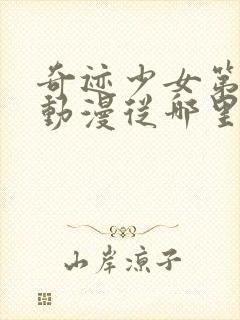 奇迹少女第
動漫從哪里
山岸凉子